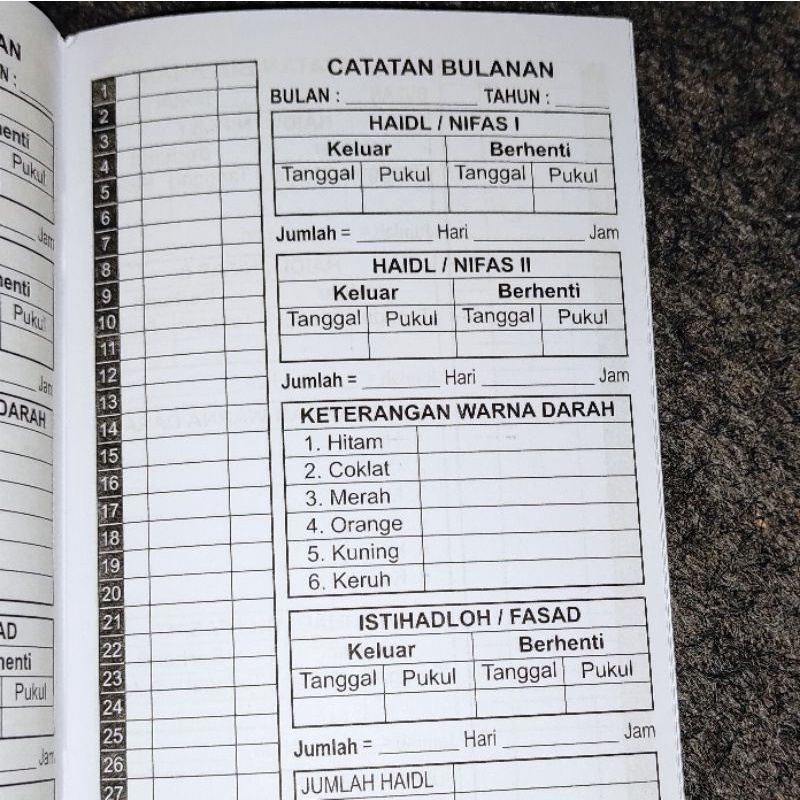 AN
N :
enti
Pukul
Jam
enti
Pukul
Jam
DARAH
AD
enti
Pukul
Jam
1
2
3
4
5
6
7
8
9
10
11
12
13
14
15
16
17
18
19
20
21
22
23
24
25
26
27
CATATAN BULANAN
BULAN : TAHUN :
HAIDL / NIFAS I
Keluar Berhenti
Tanggal Pukul Tanggal Pukul
Jumlah = Hari Jam
HAIDL / NIFAS II
Keluar Berhenti
Tanggal Pukul Tanggal Pukul
Jumlah = Hari Jam
KETERANGAN WARNA DARAH
1. Hitam
2. Coklat
3. Merah
4. Orange
5. Kuning
6. Keruh
ISTIHADLOH / FASAD
Keluar Berhenti
Tanggal Pukul Tanggal Pukul
Jumlah = Hari Jam
JUMLAH HAIDL